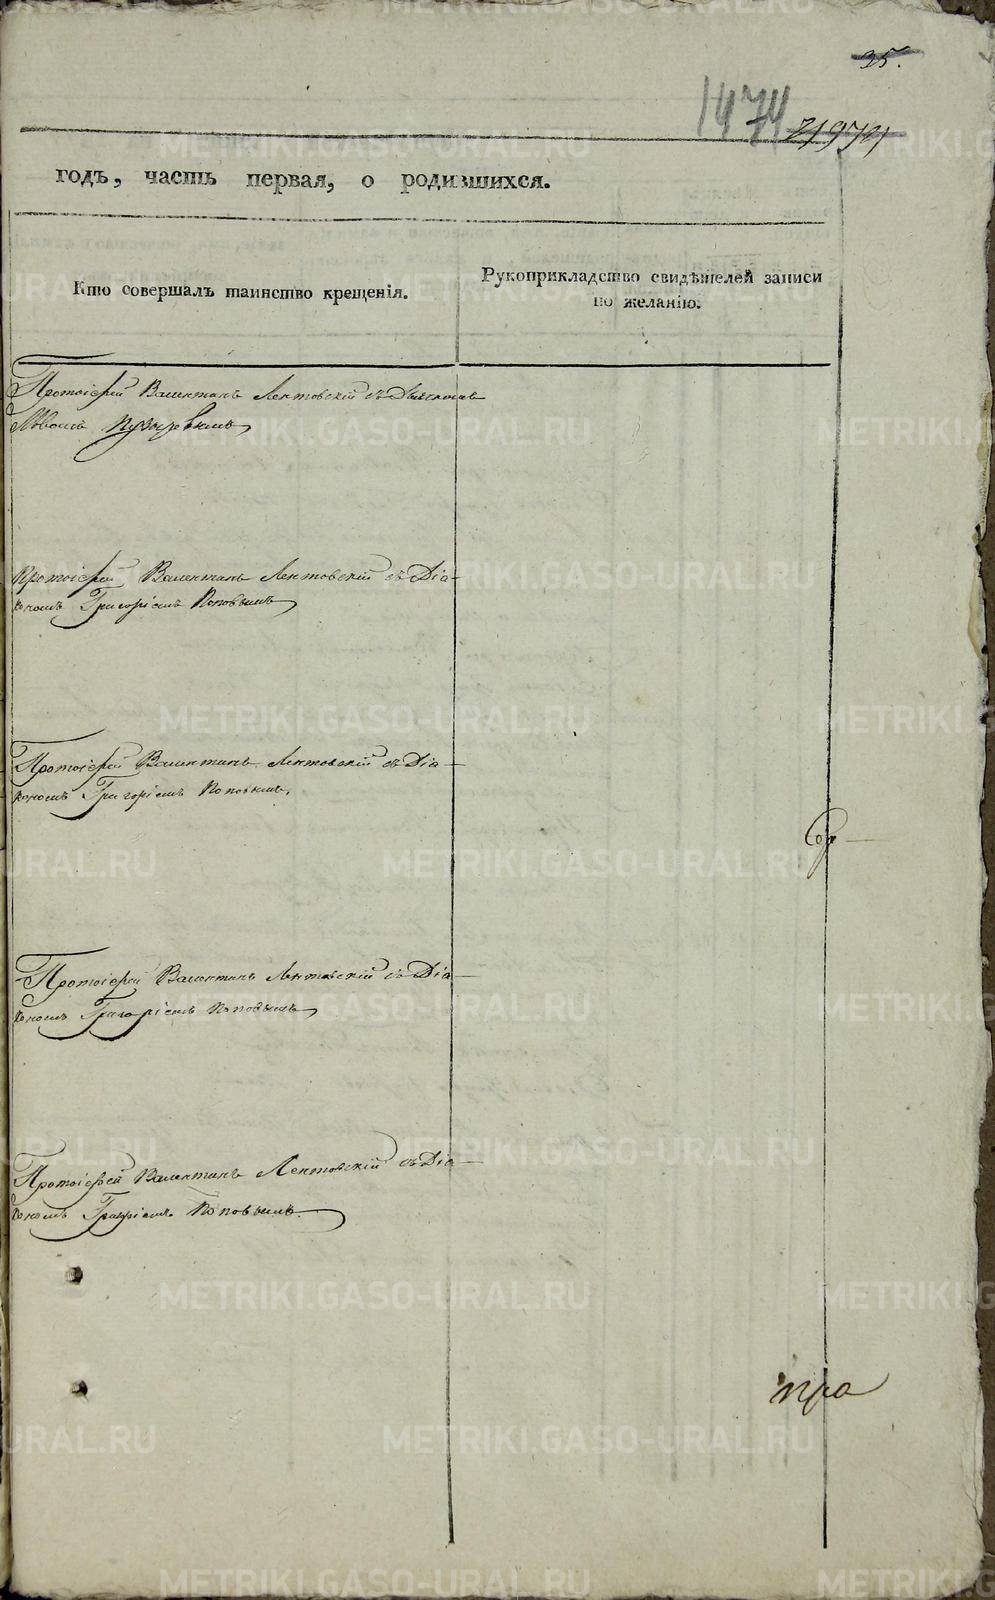 35.
1474
годъ, часть первая, о родившихся.
Кто совершалъ таинство крещенія.
Рукоприкладство свидѣтелей записи
по желанію.
Протоіерей Валентинъ Лентовскій съ Дьячкомъ
Львомъ Пузыревымъ
Протоіерей Валентинъ Лентовскій съ Діа-
кономъ Григоріемъ Поповымъ
Протоіерей Валентинъ Лентовскій съ Діа-
кономъ Григоріемъ Поповымъ.
Протоіерей Валентинъ Лентовскій съ Діа-
кономъ Григоріемъ Поповымъ
Протоіерей Валентинъ Лентовскій съ Діа-
кономъ Григоріемъ Поповымъ.
пра
METRIKI.GASO-URAL.RU